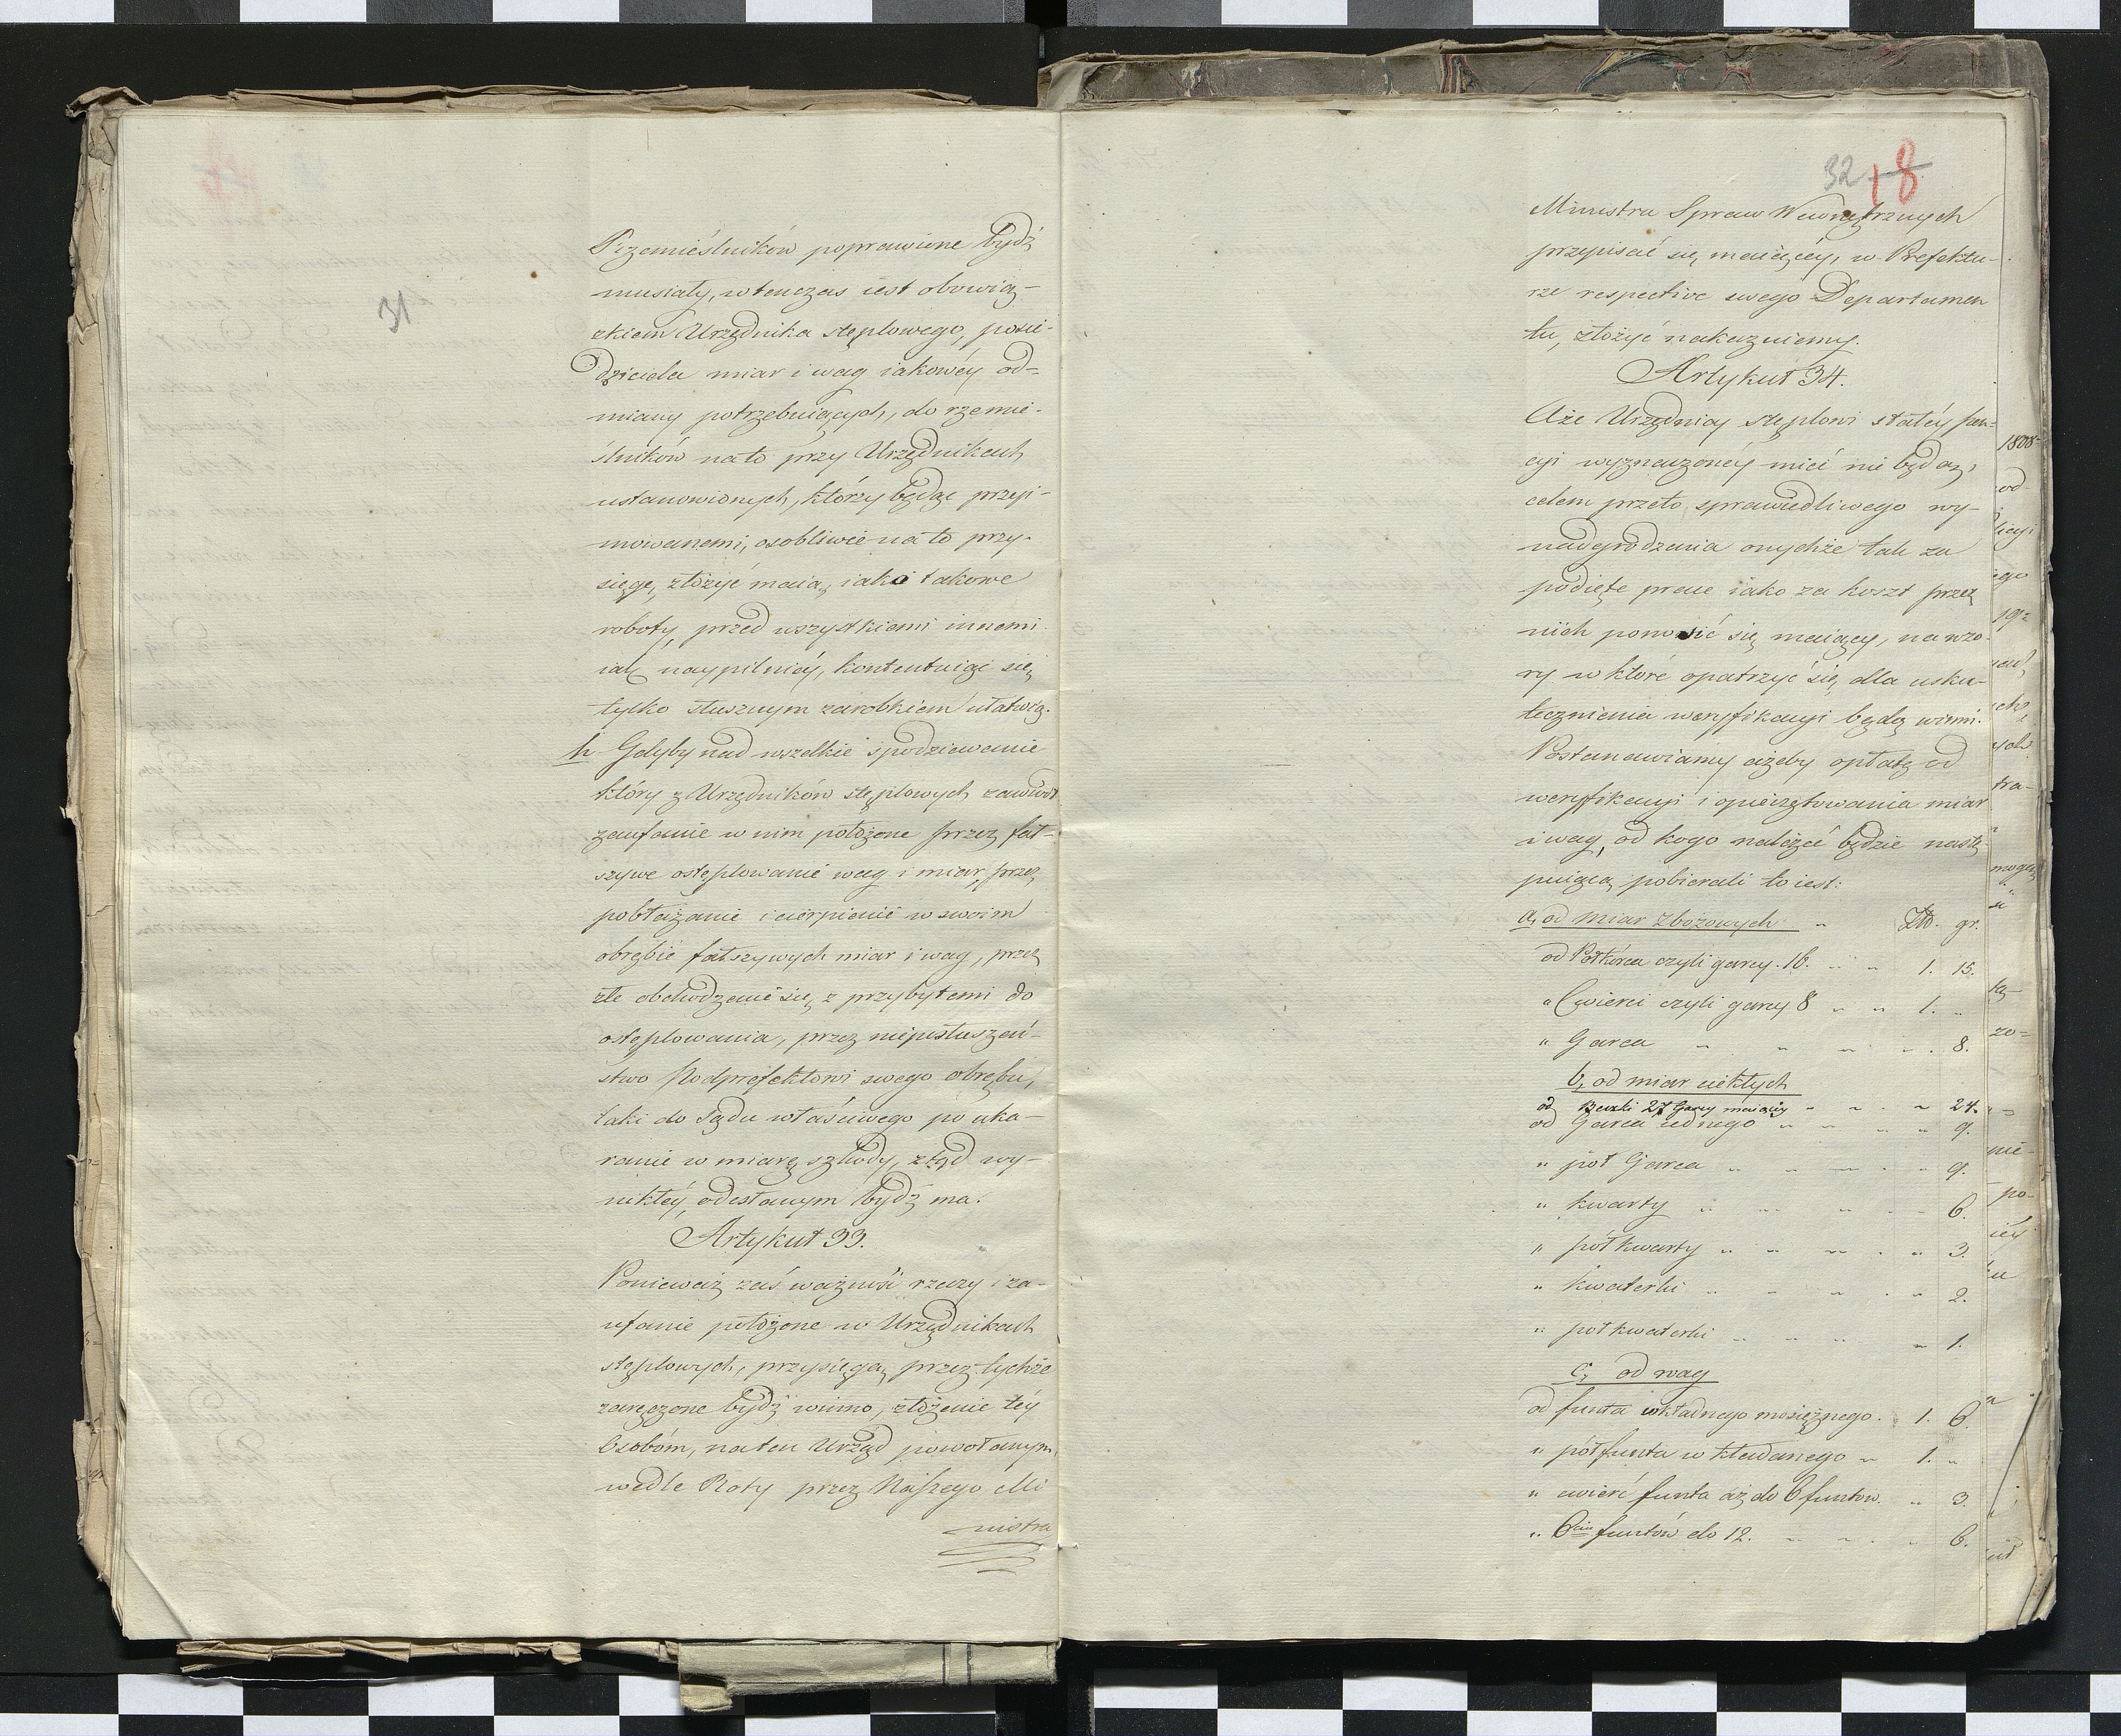 31
Rzemieślników poprawione bydź
musiały, wtenczas iest obowią-
zkiem Urzędnika stęplowego, posie-
dziciela miar i wag iakowéy od-
miany potrzebuiących, do rzemie-
ślników na to przy Urzędnikach
ustanowionych, którzy będąc przyi-
mowanemi, osobliwie na to przy-
sięgę, złożyć maią, iako takowe
roboty, przed wszystkiemi innemi
iak naypilniéy, kontentuiąc się
tylko słusznym zarobkiem ułatwią.
h. Gdyby nad wszelkie spodziewanie
który z Urzędników stęplowych zawiódł
zaufanie w nim położone przez fał-
szywe ostęplowanie wag i miar, przez
pobłażanie i cierpienie w swoim
obrębie fałszywych miar i wag, przez
złe obchodzenie się z przybyłemi do
ostęplowania, przez nieposłuszeń-
stwo Podprefektowi swego obrębu,
taki do Sądu właściwego po uka-
ranie w miarę szkody, ztąd wy-
nikłéy, odesłanym bydź ma.
Artykuł 33.
Ponieważ zaś ważność rzeczy i za-
ufanie położone w Urzędnikach
stęplowych, przysięgą przez tychże
zaręczone bydź winno, złożenie téy
Osobóm, na ten Urząd powołanym,
wedle Roty przez Naszego Mi
nistra
32 18
Ministra Spraw Wewnętrznych
przepisać się maiącéy, w Prefektu-
rze respective swego Departamen
tu, złożyć nakazuiemy.
Artykuł 34.
Aże Urzędnicy stęplowi stałéy pen-
cyi wyznaczonéy mieć nie będą,
celem przeto sprawiedliwego wy-
nadgrodzenia onychże tak za
podięte prace iako za koszt przez
nich ponosić się maiący, na wzo-
ry w które opatrzyć się dla usku-
tecznienia weryfikacyi będą winni.
Postanawiamy ażeby opłatę od
weryfikacyi i opieczętowania miar
i wag, od kogo należeć będzie nastę-
puiącą pobierali to iest:
a, od miar Zbożowych " Złł. gr.
od Półkorca czyli garcy. 16. " " 1. 15.
" Cwierci czyli garcy 8 " " 1. "
" Garca " " " " 8.
b, od miar ciekłych
od Beczki 24 Garcy maiącéy " " " 24.
od Garca iednego " " " " 9.
" pół Garca " " " " 9.
" kwarty " " " " 6.
" półkwarty " " " " 3.
" kwaterki " " " " 2.
" półkwaterki " " " " 1.
c, od wag
od funta wkładnego mosiężnego. 1. 6.
" półfunta wkładanego " 1. "
" cwierć funta aż do 6 funtow. " 3.
" 6ciu funtów do 12. " " " 6.